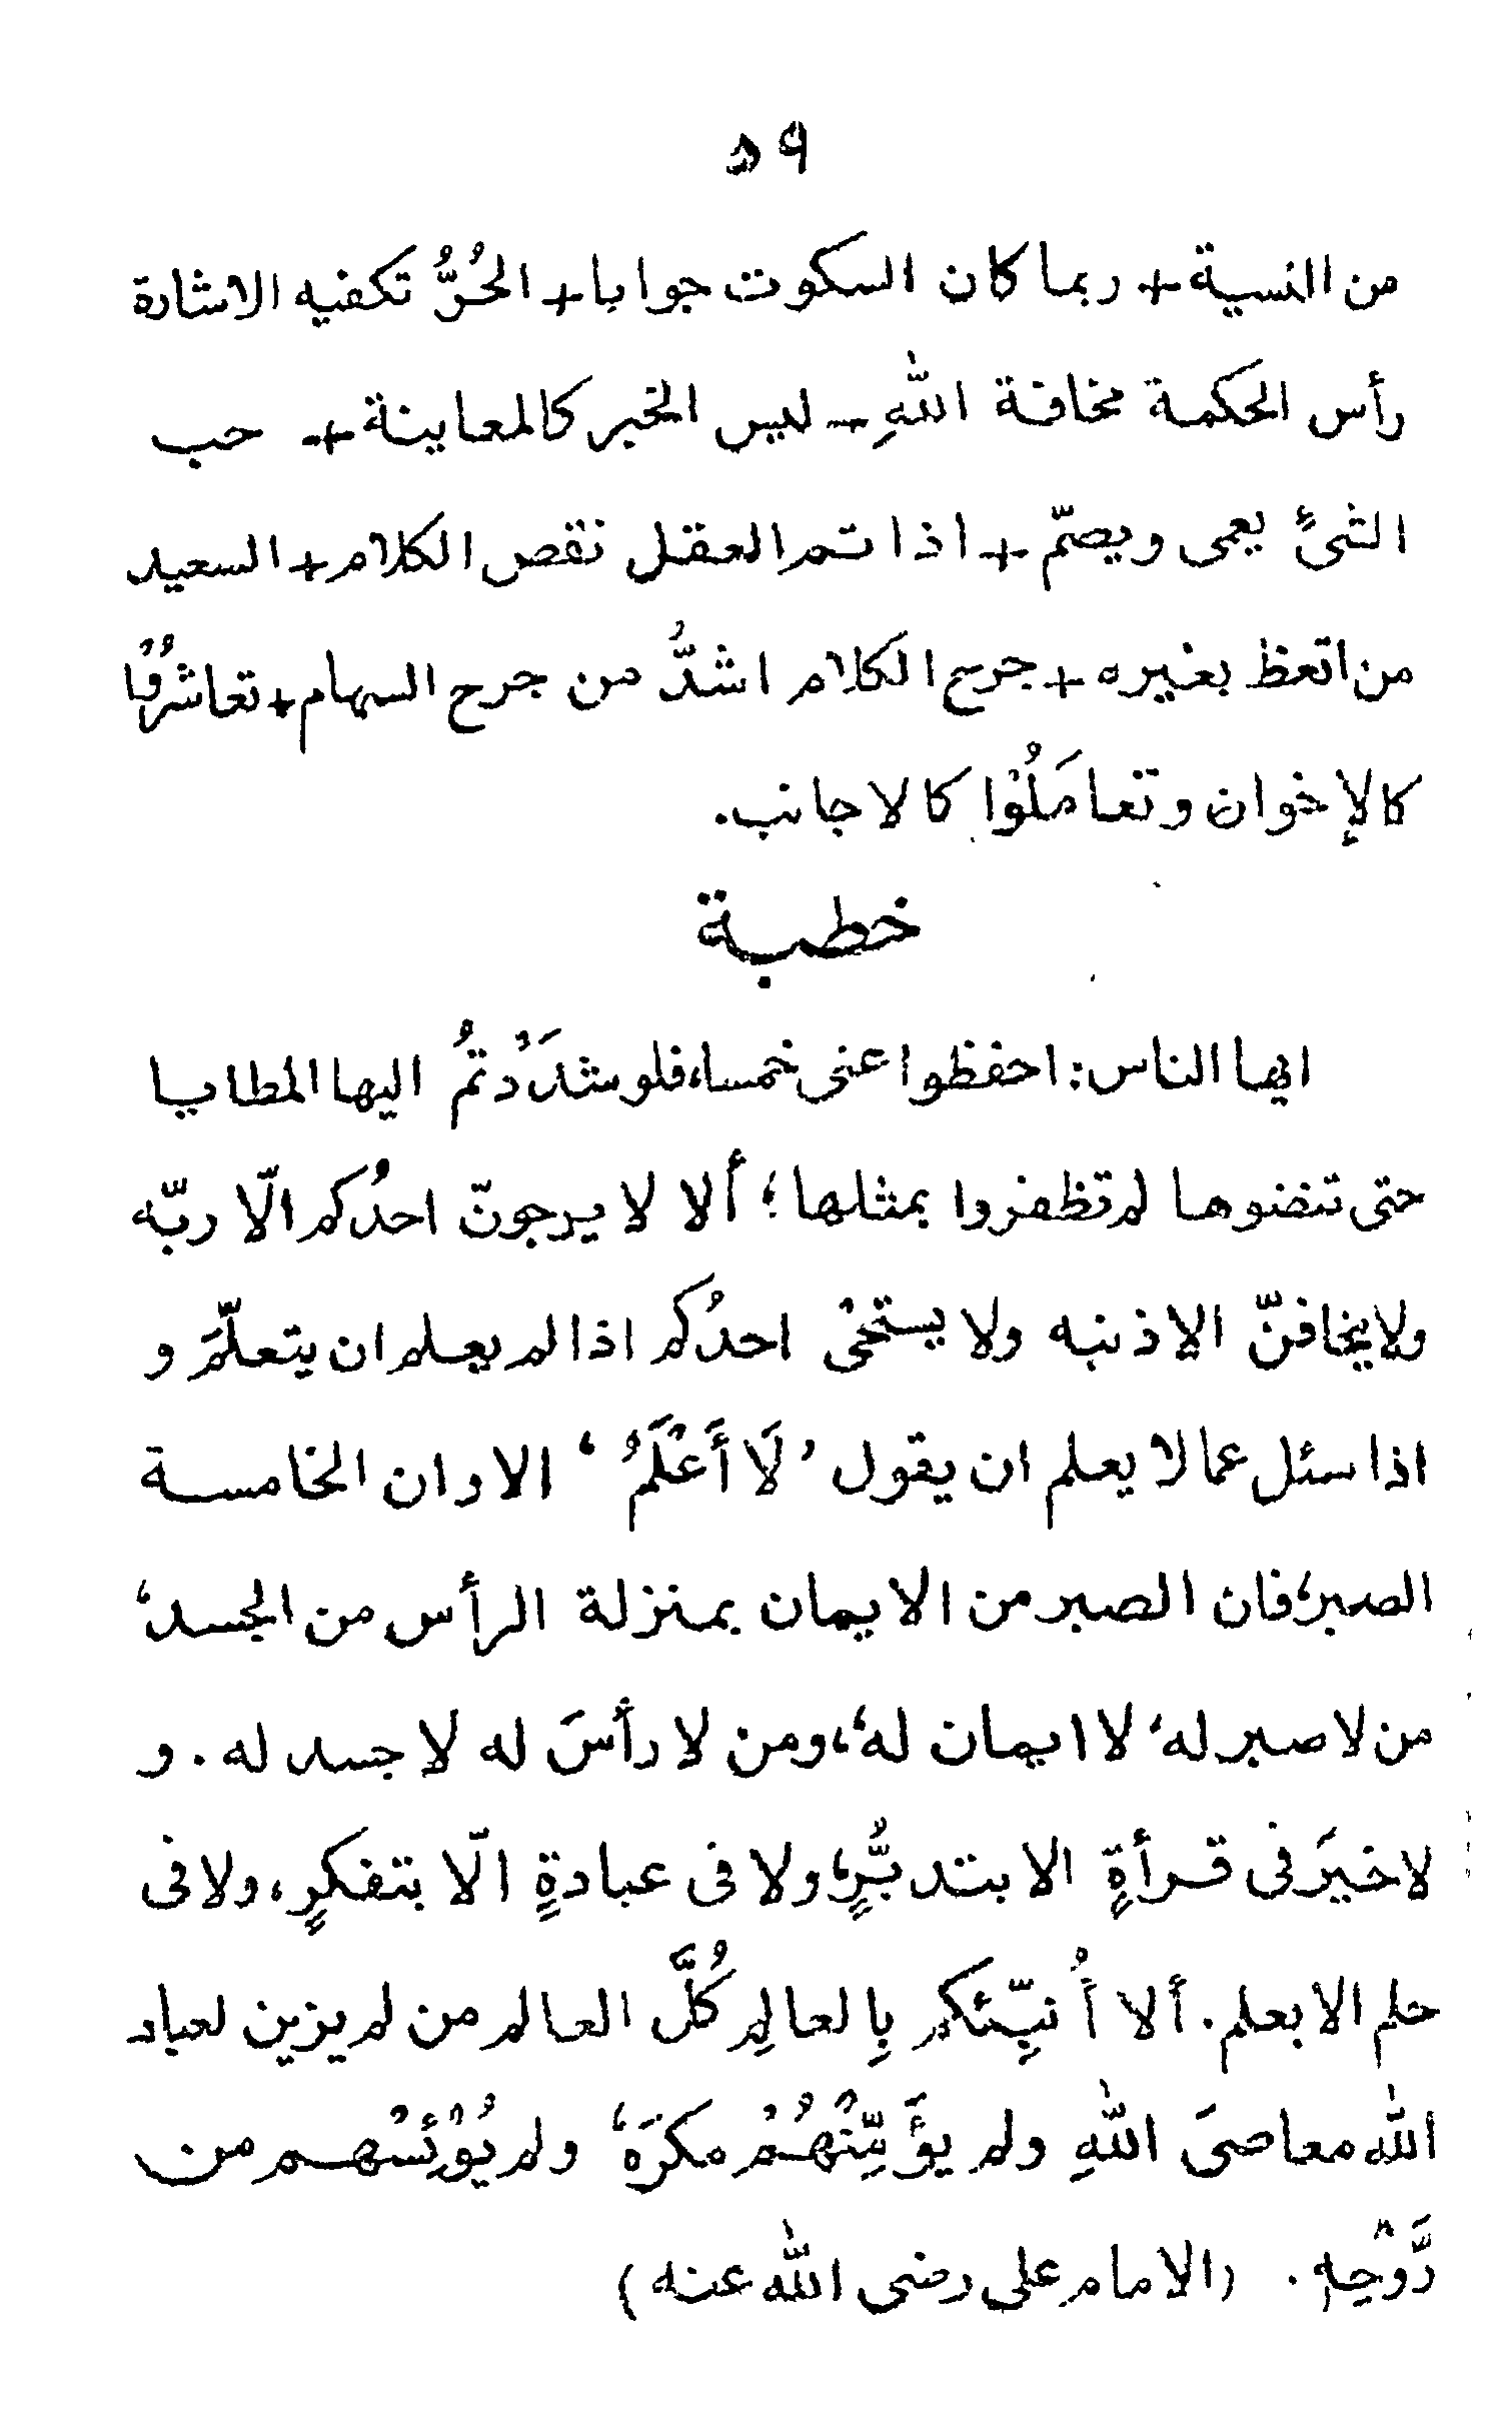 ۵۹
من النسية + ربما كان السكوت جوابا + الحُرُّ تكفيه الاشارة
رأس الحكمة مخافة اللهِ - ليس الخبر كالمعاينة + حب
الشئ يعمى ويصمّ + اذا تم العقل نقص الكلام + السعيد
من اتعظ بغيره + جرح الكلام اشدُّ من جرح السهام + تعاشرُوْا
كالإخوان وتعامَلُوْا كالاجانب.
خطبة
ايها الناس: احفظوا عنى خمسا، فلو شدَدْتمُ اليها المطايا
حتى تنضوها لم تظفروا بمثلها؛ ألا لا يرجونّ احدُكم الّا ربّه
ولا يخافنّ الا ذنبه ولا يستحْى احدُكم اذا لم يعلم ان يتعلّمَ و
اذا سئل عما لا يعلم ان يقول ’لَا أَعْلَمُ‘ الا وان الخامسة
الصبر، فان الصبر من الايمان بمنزلة الرأس من الجسد،
من لا صبر له، لا ايمان له، ومن لا رأسَ له لا جسد له. و
لا خيرَ فى قرأةٍ الا بتدبُّرٍ، ولا فى عبادةٍ الّا بتفكرٍ، ولا فى
حلم الا بعلم. ألا أُنبِّئكم بِالعالِم كُلَّ العالم من لم يزين لعباد
الله معاصىَ اللهِ ولم يؤَمِّنْهُمْ مكرَه، ولم يُوْئسْهم من
رَّوْحِهٖ. (الامام على رضى الله عنه)